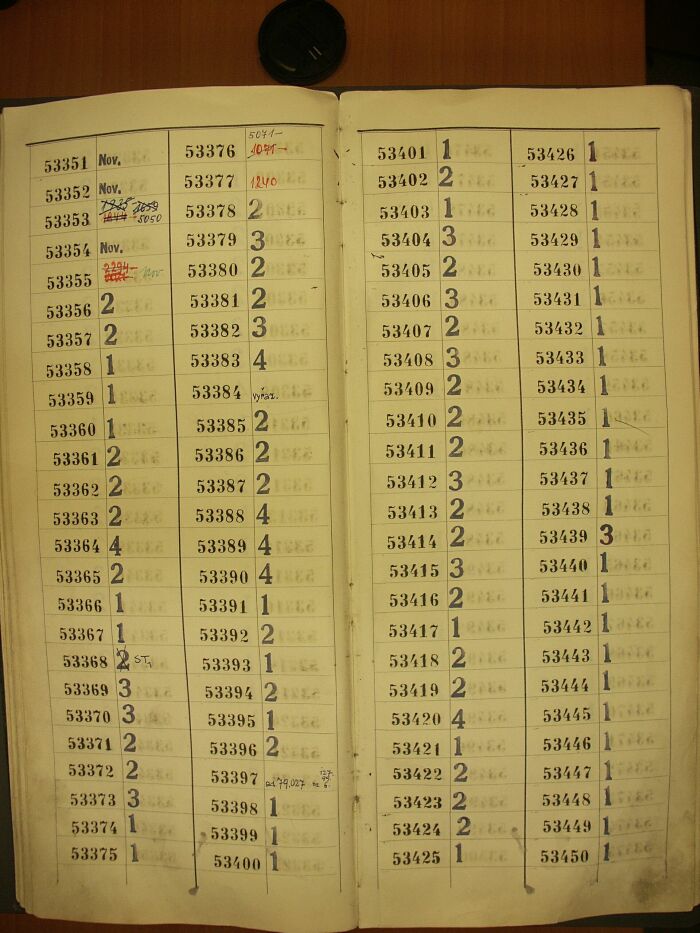 53351 Nov.
53352 Nov.
53353 5050
53354 Nov.
53355 2294- Nov
53356 2
53357 2
53358 1
53359 1
53360 1
53361 2
53362 2
53363 2
53364 4
53365 2
53366 1
53367 1
53368 2 ST,
53369 3
53370 3
53371 2
53372 2
53373 3
53374 1
53375 1
5071-
53376 1071-
53377 1240
53378 2
53379 3
53380 2
53381 2
53382 3
53383 4
53384 vyřaz.
53385 2
53386 2
53387 2
53388 4
53389 4
53390 4
53391 1
53392 2
53393 1
53394 2
53395 1
53396 2
53397 79,027
53398 1
53399 1
53400 1
53401 1
53402 2
53403 1
53404 3
53405 2
53406 3
53407 2
53408 3
53409 2
53410 2
53411 2
53412 3
53413 2
53414 2
53415 3
53416 2
53417 1
53418 2
53419 2
53420 4
53421 1
53422 2
53423 2
53424 2
53425 1
53426 1
53427 1
53428 1
53429 1
53430 1
53431 1
53432 1
53433 1
53434 1
53435 1
53436 1
53437 1
53438 1
53439 3
53440 1
53441 1
53442 1
53443 1
53444 1
53445 1
53446 1
53447 1
53448 1
53449 1
53450 1